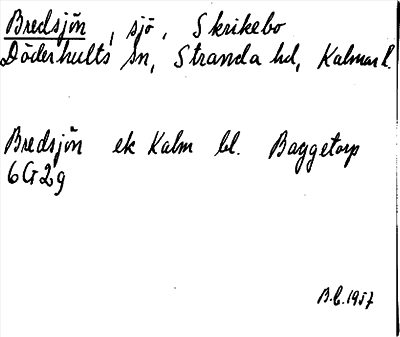 Bredsjön, sjö, Skrikebo
Döderhults sn, Stranda hd, Kalmar l.
Bredsjön ek Kalm bl. Baggetorp
6G2g
B.L. 1957